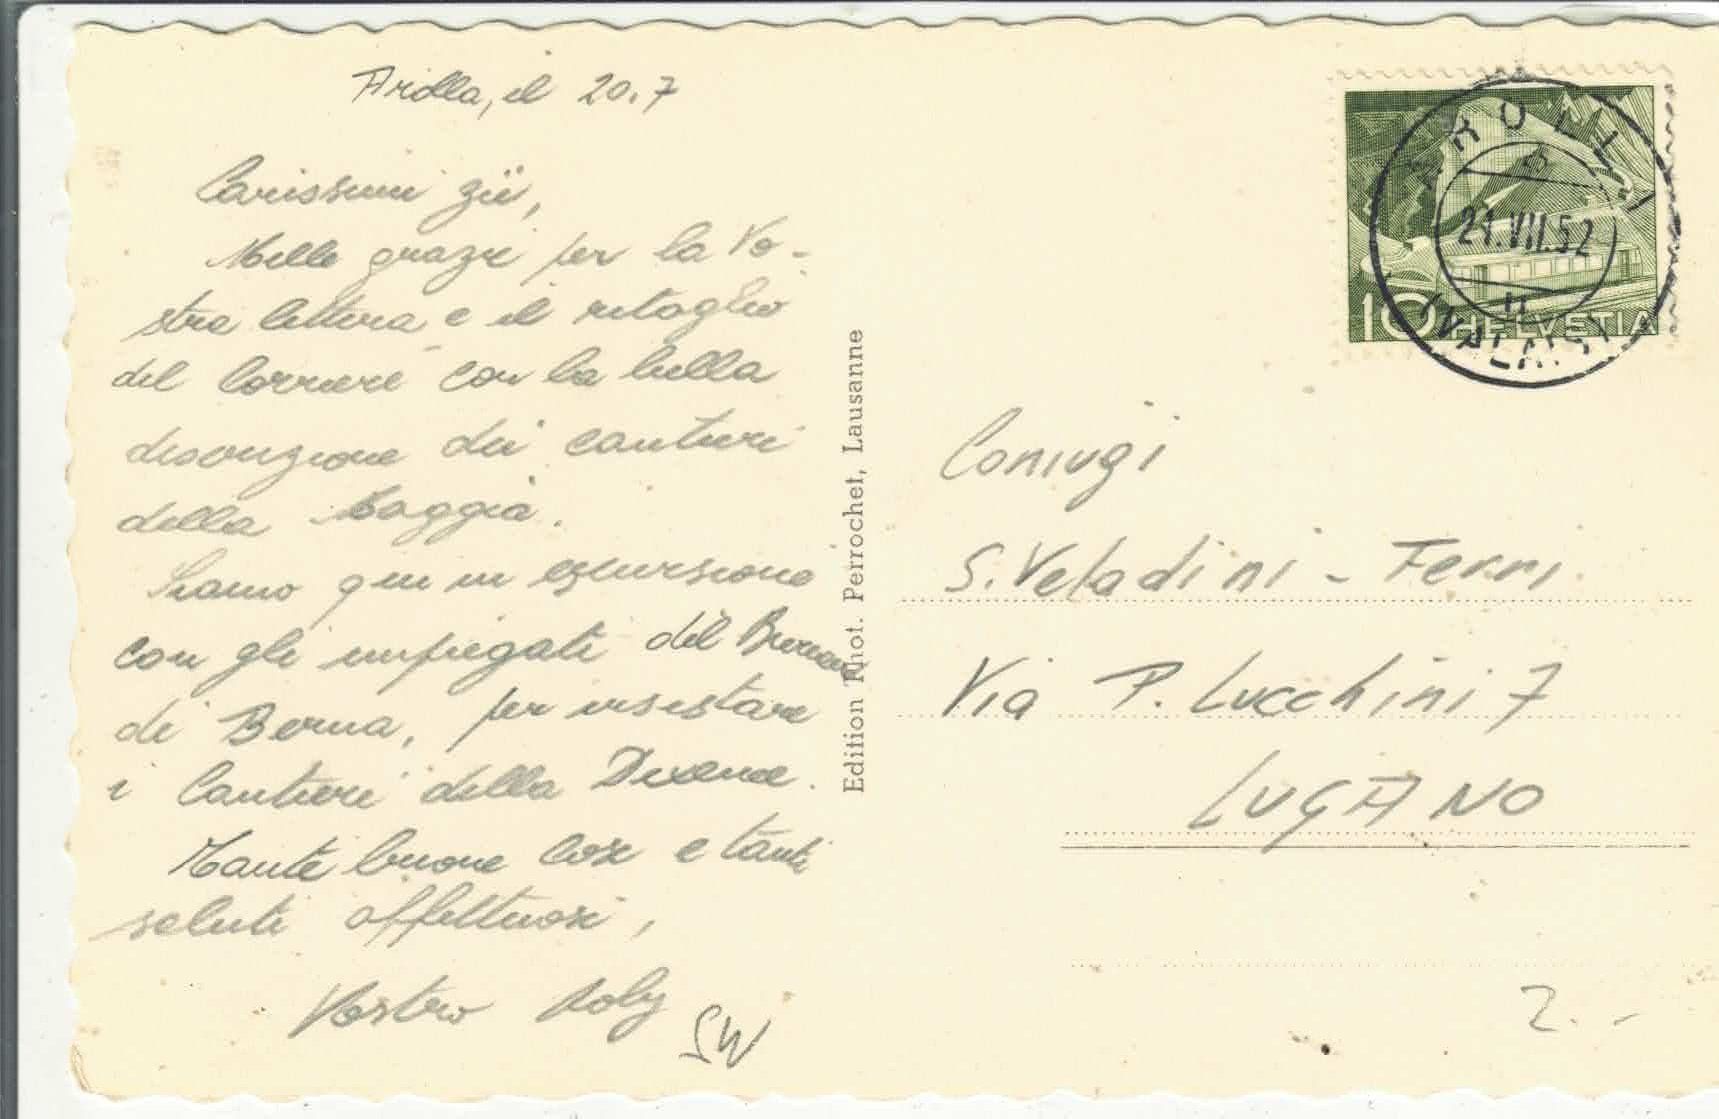 Arolla, il 20.7
Carissimi zii,
Mille grazie per la Vo-
stra lettera e il ritaglio
del Corriere con la bella
descrizione dei cantieri
della Maggia.
Siamo qui in escursione
con gli impiegati del Bureau
di Berna, per visistare
i Cantieri della Dixence.
Tante buone cose e tanti
saluti affettuosi,
Vostro
SW
Edition Phot. Perrochet, Lausanne
AROLLA
21.VII.52
(VALAIS)
10 HELVETIA
Coniugi
S. Veladini - Ferri
Via P. Lucchini 7
LUGANO
2.-